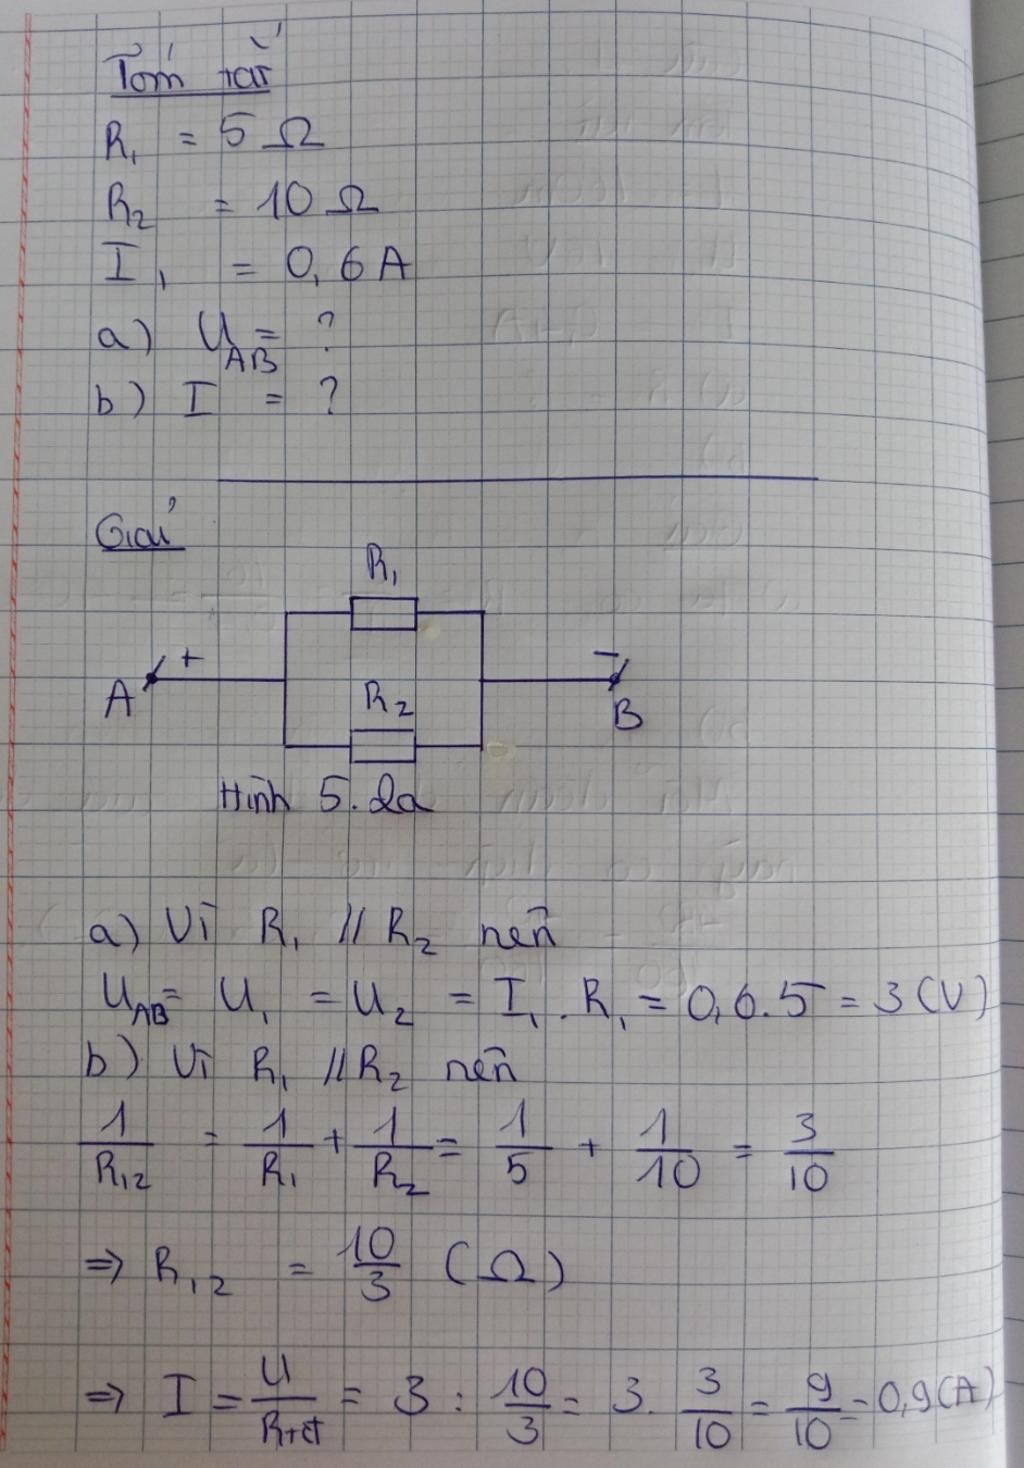 Tóm tắt
R₁ = 5 Ω
R₂ = 10 Ω
I₁ = 0,6 A
a) U_AB = ?
b) I = ?
Giải
R₁
A + - B
R₂
Hình 5.2a
a) Vì R₁ // R₂ nên
U_AB = U₁ = U₂ = I₁ . R₁ = 0,6.5 = 3 (V)
b) Vì R₁ // R₂ nên
1/R₁₂ = 1/R₁ + 1/R₂ = 1/5 + 1/10 = 3/10
⇒ R₁₂ = 10/3 (Ω)
⇒ I = U/R_tđ = 3 : 10/3 = 3. 3/10 = 9/10 = 0,9 (A)